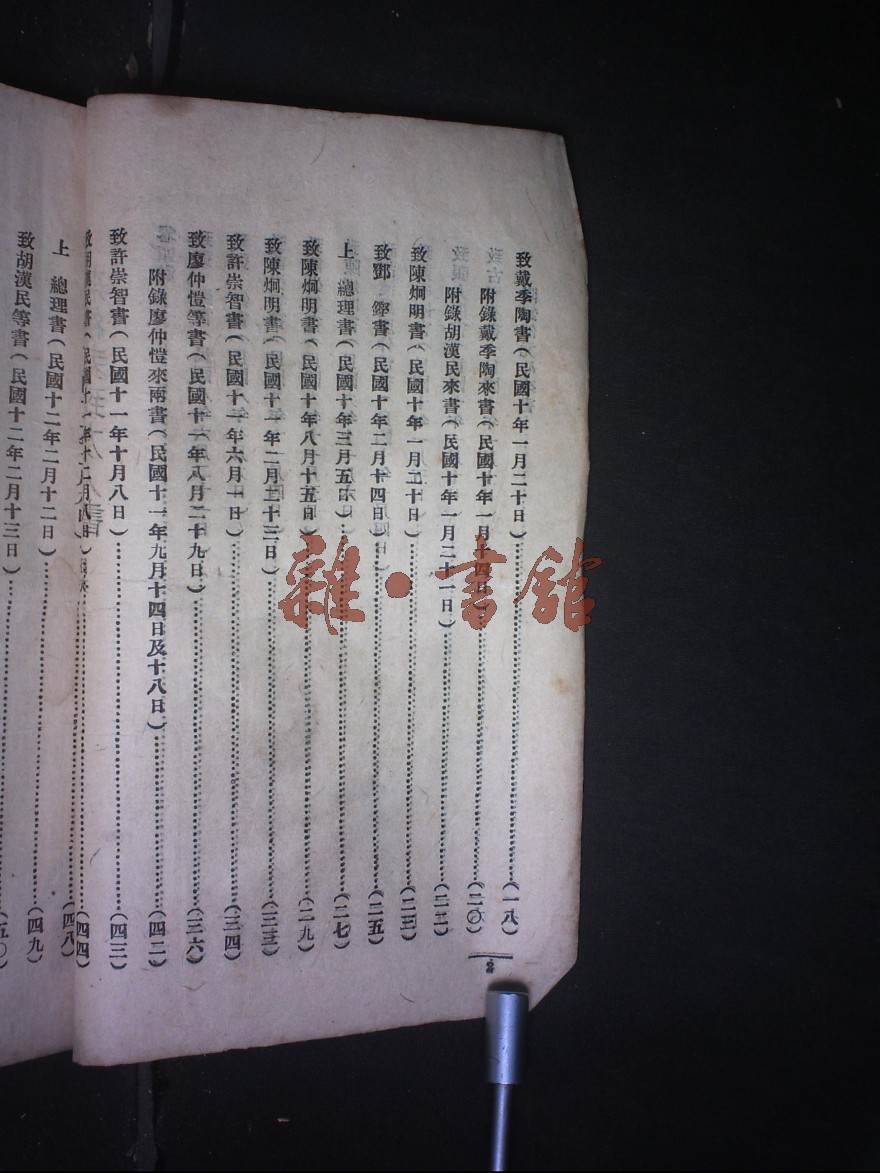 致戴季陶書(民國十年一月二十日)……(一八)
附錄戴季陶來書(民國十年一月十四日)……(二〇)
附錄胡漢民來書(民國十年一月二十一日)……(二二)
致陳炯明書(民國十年一月二十日)……(二三)
致鄧 鏗書(民國十年二月十四日)……(二五)
上 總理書(民國十年三月五日)……(二七)
致陳炯明書(民國十年八月十五日)……(二九)
致陳炯明書(民國十一年二月二十三日)……(三三)
致許崇智書(民國十一年六月一日)……(三四)
致廖仲愷等書(民國十一年八月二十九日)……(三六)
附錄廖仲愷來兩書(民國十一年九月十四日及十八日)……(四二)
致許崇智書(民國十一年十月八日)……(四三)
致胡漢民書(民國十一年十二月 日)……(四四)
(四八)
上 總理書(民國十二年二月十二日)……(四九)
致胡漢民等書(民國十二年二月十三日)……(五〇)
2
雜·書館